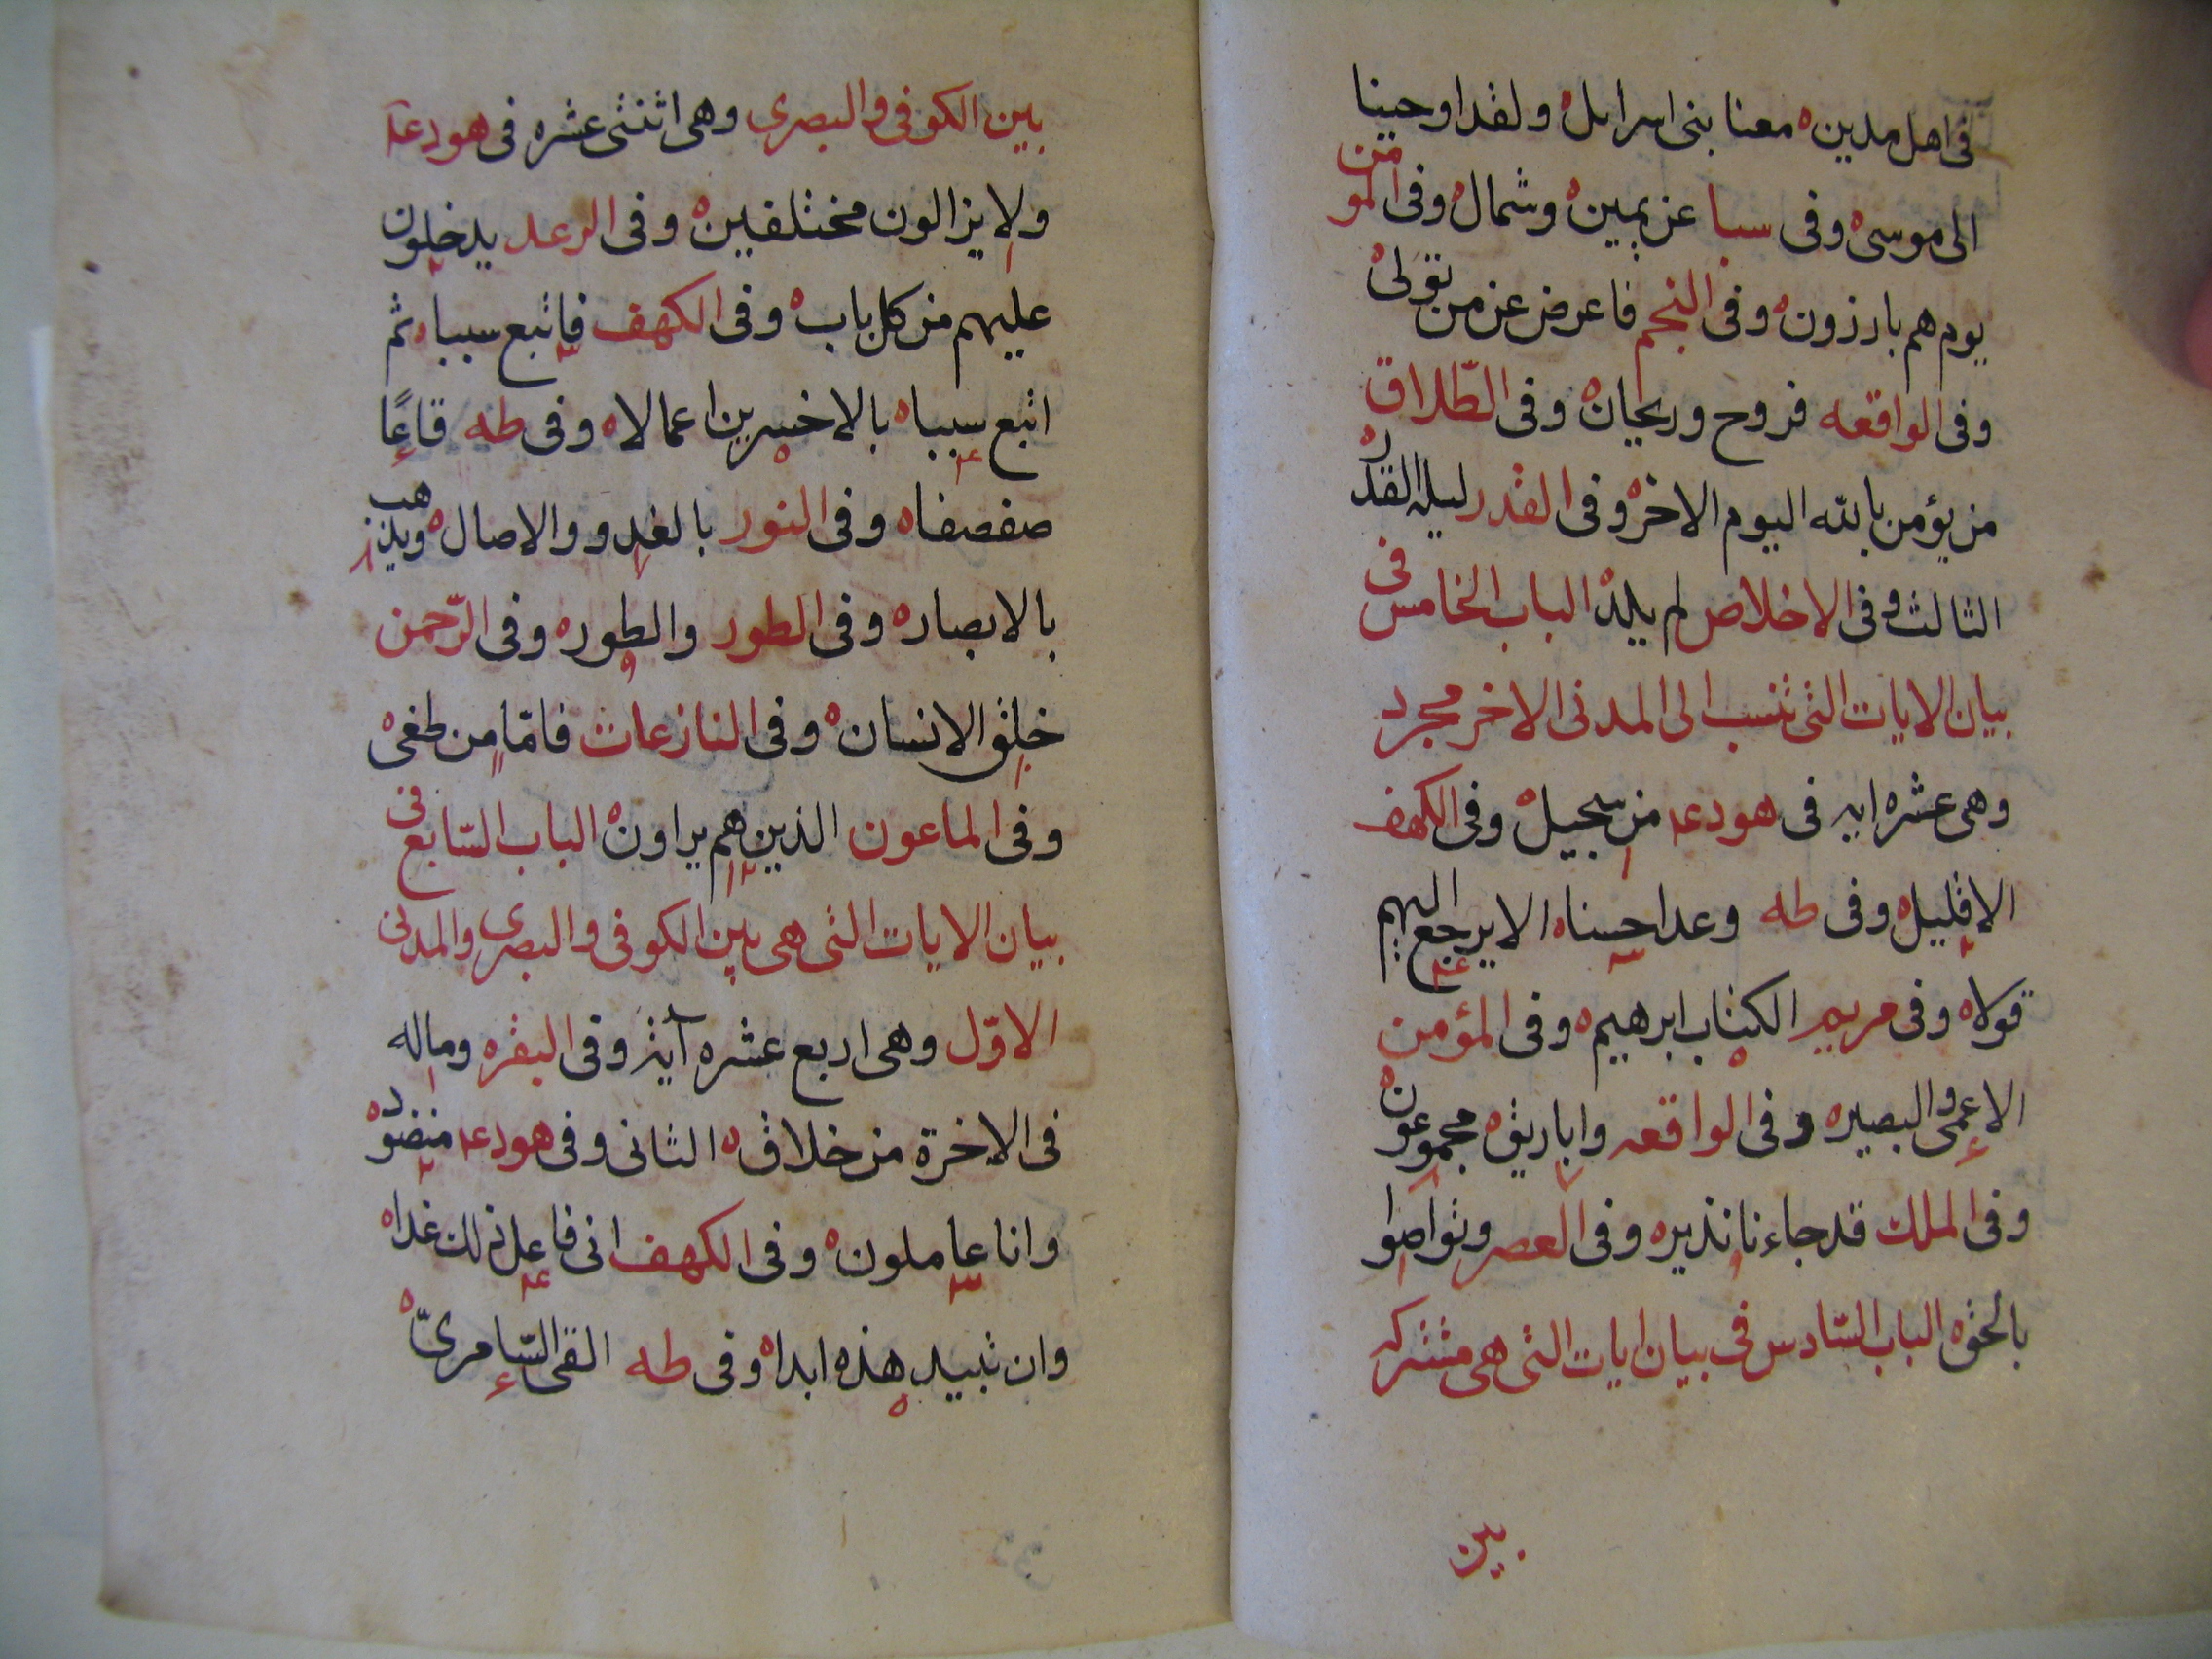 فى اهل مدين ه معنا بنى اسرايل ه ولقد اوحينا
الى موسى ه وفى سبا عن يمين ه وشمال ه وفى المؤمن
يوم هم بارزون ه وفى النجم فاعرض عن من تولى ه
وفى الواقعه فروح وريحان ه وفى الطّلاق
من يؤمن بالله اليوم الاخر ه وفى القدر ليلة القدر ه
الثالث وفى الاخلاص لم يلد ه الباب الخامس فى
بيان الايات التى تنسب الى المدنى الاخر مجرد
وهى عشره ايه فى هود عم من سجيل ه وفى الكهف
الا قليل ه وفى طه وعدا حسنا ه الا يرجع اليهم
قولا ه وفى مريم الكتاب ابرهيم ه وفى المؤمن
الاعمى والبصير ه وفى الواقعه واباريق ه مجموعون ه
وفى الملك قد جاءنا نذير ه وفى العصر وتواصوا
بالحق ه الباب السّادس فى بيان ايات التى هى مشتركه
بين
بين الكوفى والبصرى وهى اثنتى عشره فى هود عم
ولا يزالون مختلفين ه وفى الرعد يدخلون
عليهم من كل باب ه وفى الكهف فاتبع سببا ه ثم
اتبع سببا ه بالاخسرين اعمالا ه وفى طه قاعًا
صفصفا ه وفى النور بالغدو والاصال ه ويذهب
بالابصار ه وفى الطور والطور ه وفى الرّحمن
خلق الانسان ه وفى النازعات فامّا من طغى ه
وفى الماعون الذين هم يراون ه الباب السّابع فى
بيان الايات التى هى بين الكوفى والبصرى والمدنى
الاوّل وهى اربع عشره آية وفى البقره وماله
فى الاخرة من خلاق ه الثانى وفى هود عم منضود ه
وانا عاملون ه وفى الكهف انى فاعل ذلك غدا ه
وان تبيد هذه ابدا ه وفى طه القى السّامرىّ ه